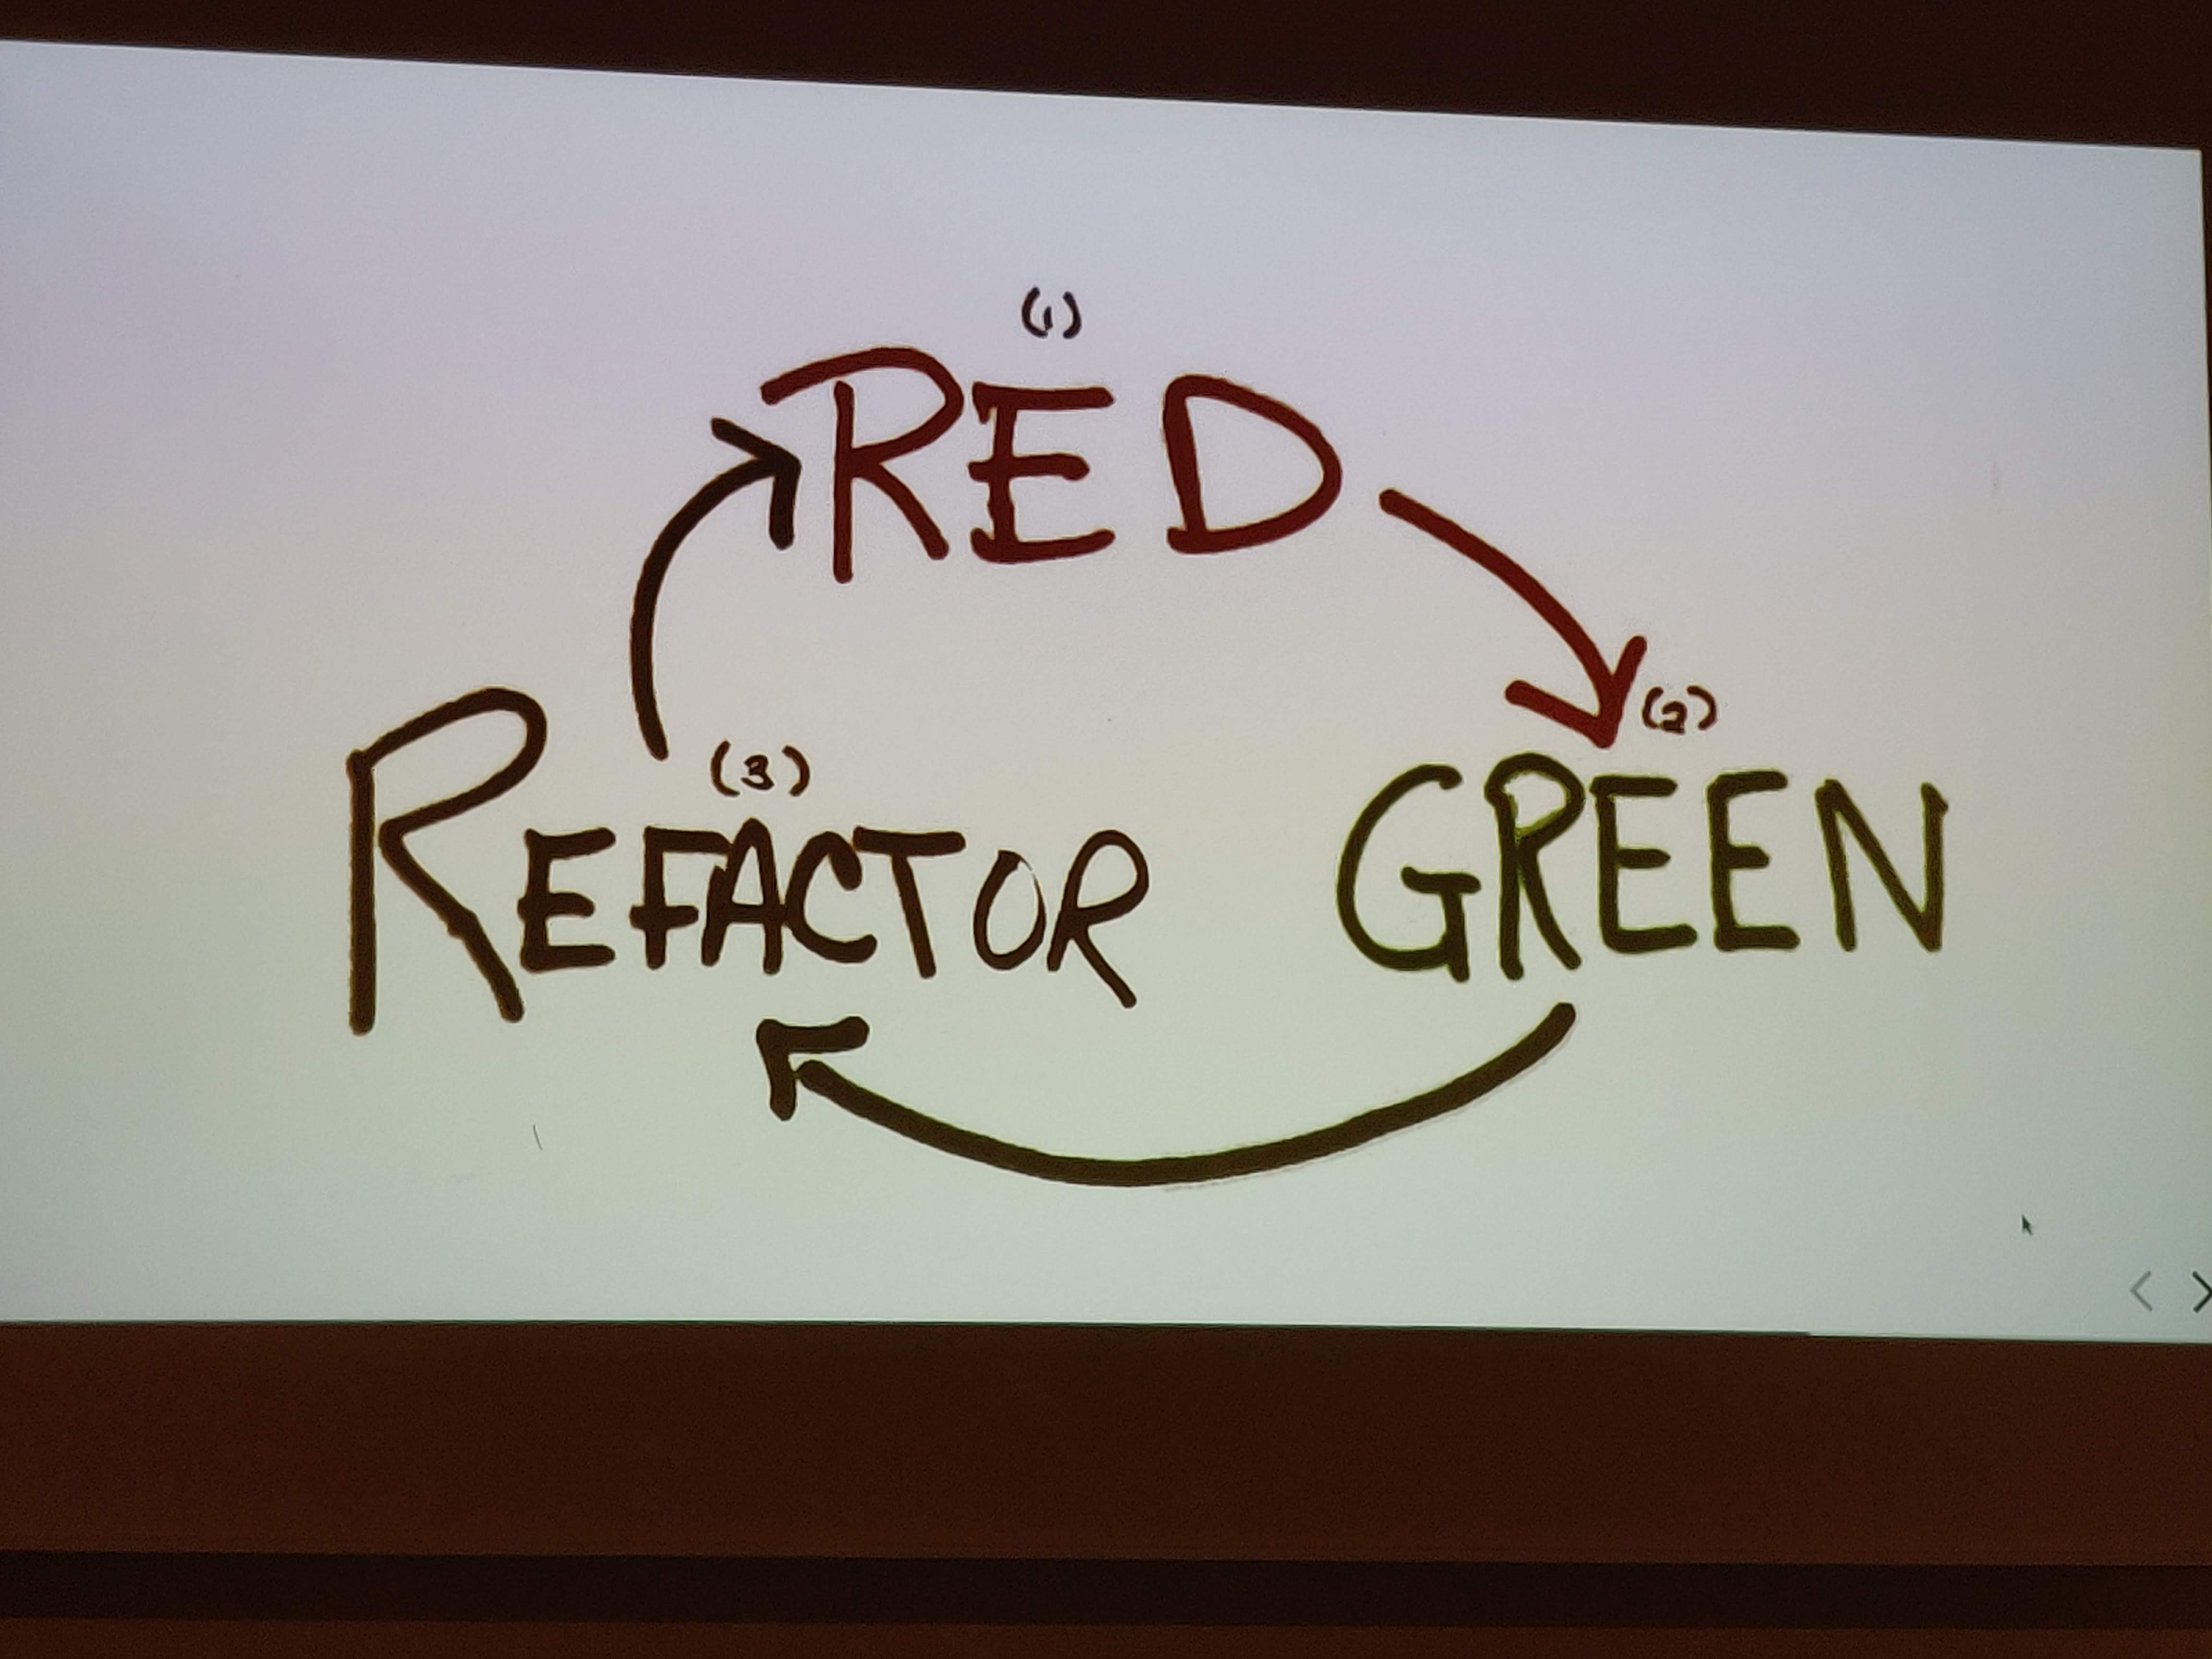 (1)
RED
(2)
GREEN
(3)
REFACTOR